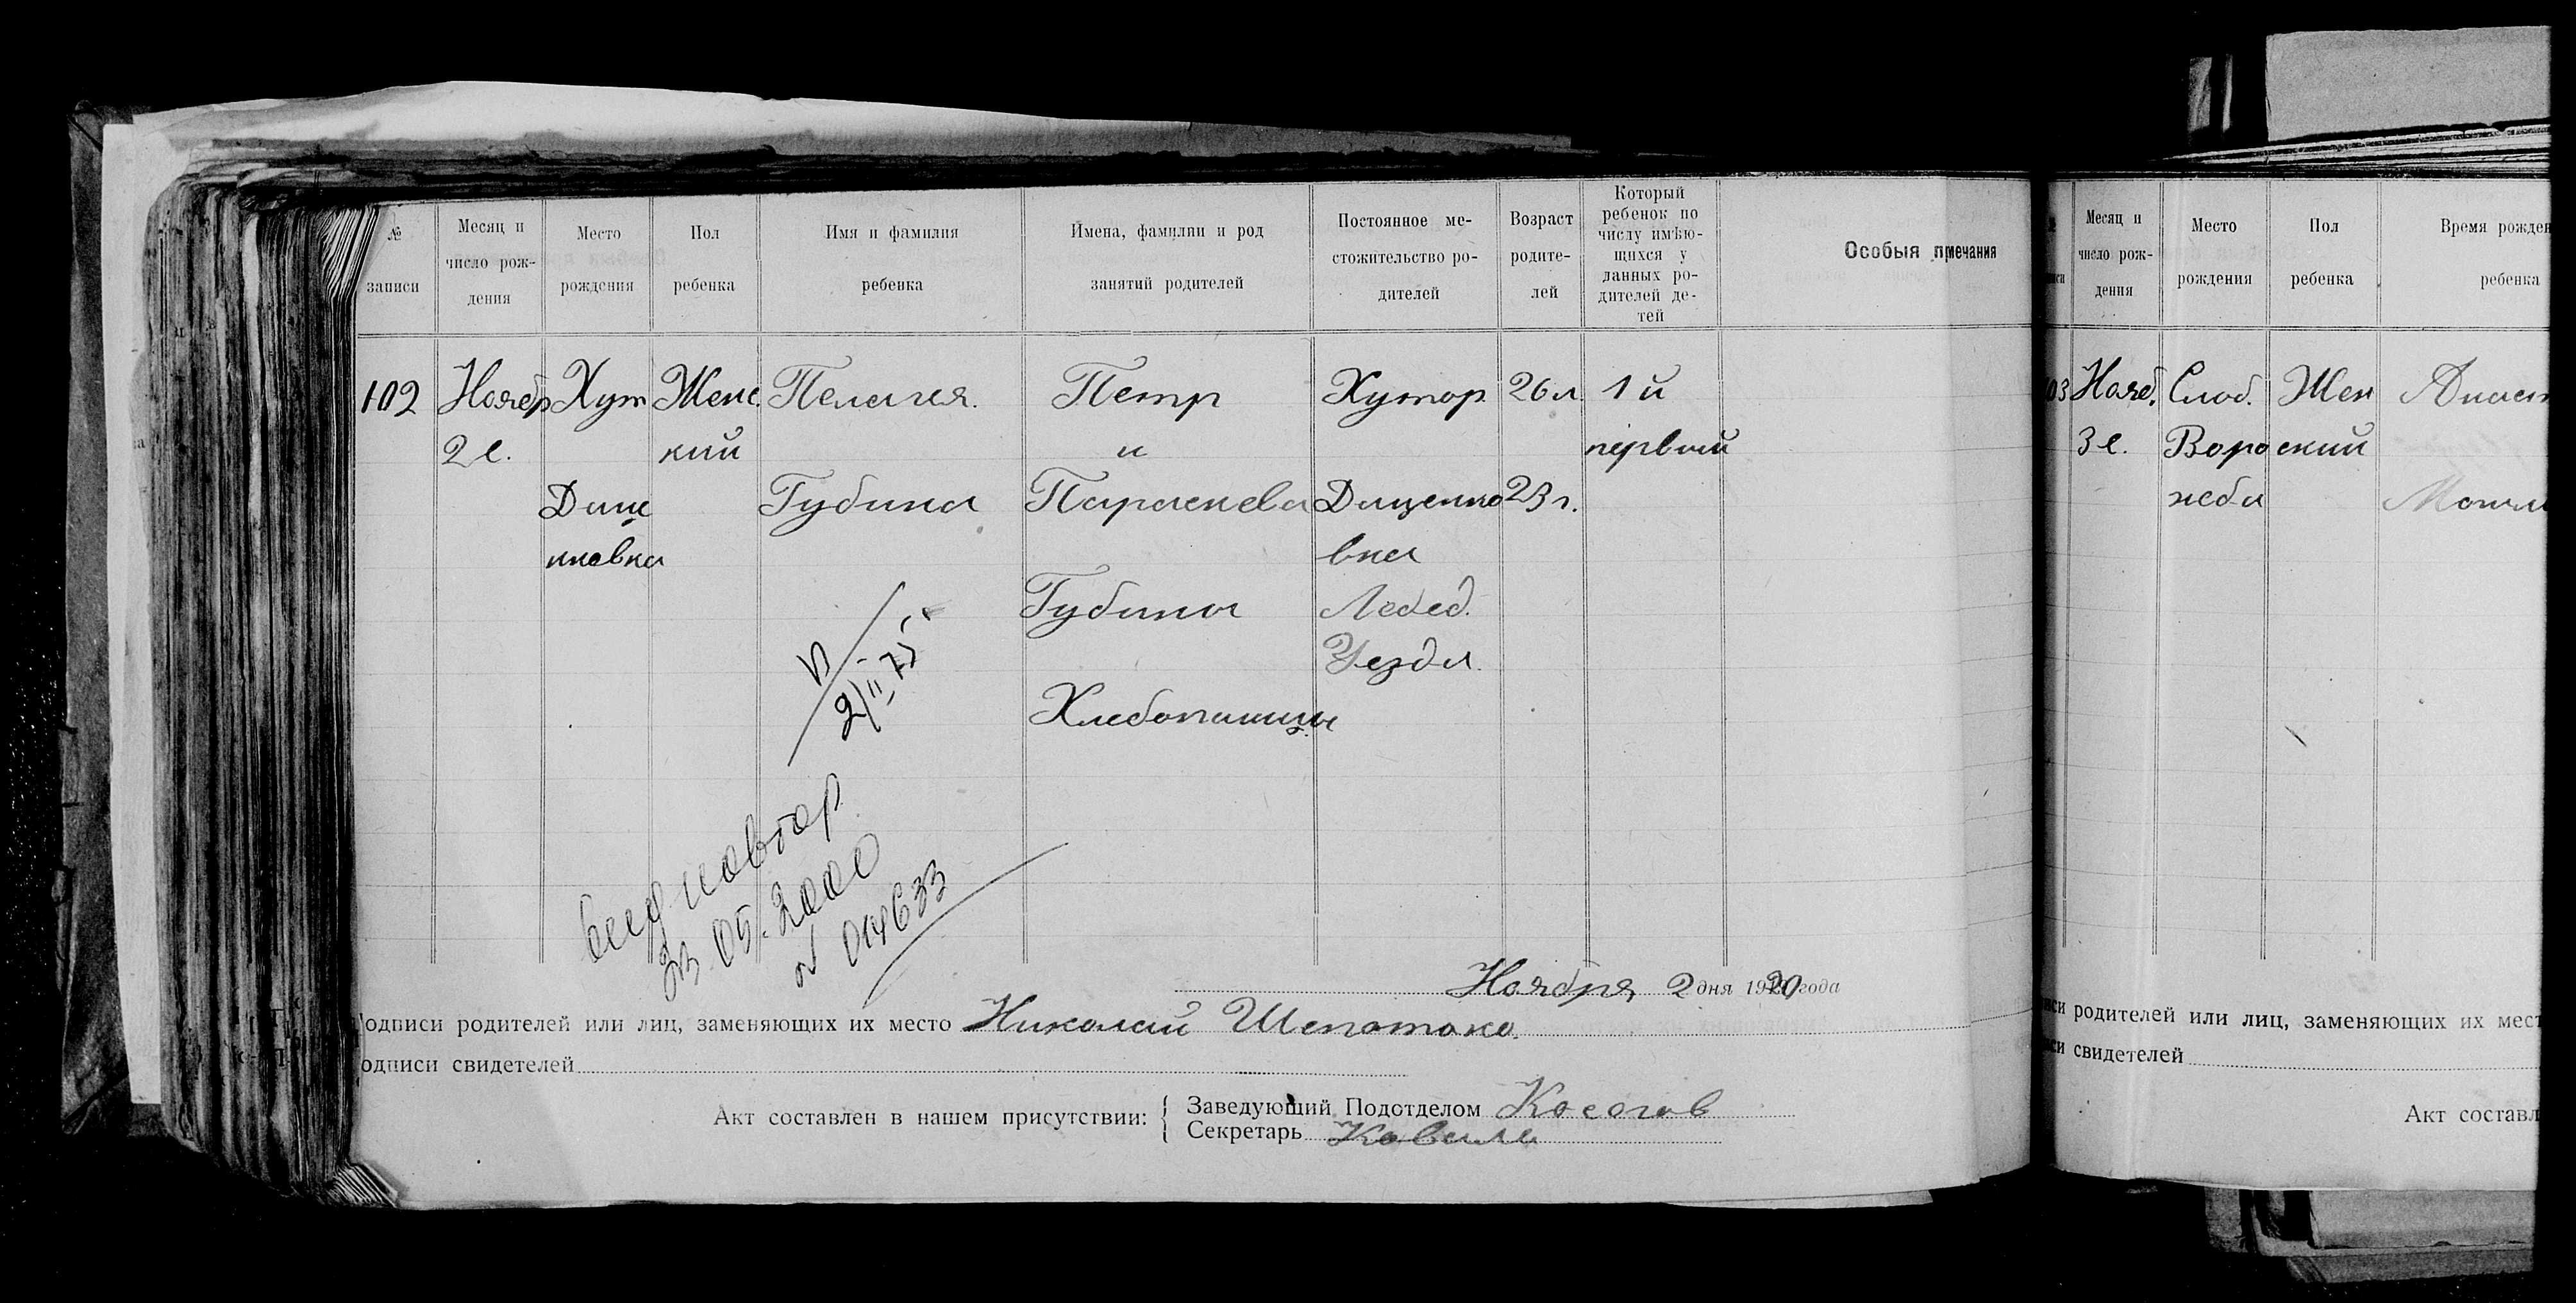 № записи
Месяц и число рождения
Место рождения
Пол ребенка
Имя и фамилия ребенка
Имена, фамилии и род занятий родителей
Постоянное местожительство родителей
Возраст родителей
Который ребенок по числу имѣющихся у данных родителей детей
Особыя
102
Ноябр
2 е.
Хут
Дащенковка
Женский
Пелагея.
Губина
Петр
и
Параскева
Губины
Хлебопашцы
Хутор
Даценко
вка
Лебед.
Уезда.
26 л
23 г.
1 й
первый
2/II-75
повтор
23.05.2000
014633
Ноября 2 дня 1920 года
одписи родителей или лиц, заменяющих их место Николай Шепотько
одписи свидетелей
Акт составлен в нашем присутствии:
Заведующий Подотделом Косогов
Секретарь
Месяц и число рождения
Место рождения
Пол ребенка
Время рожден
ребенка
03
Нояб.
3 е.
Слоб.
Ворожба
Женский
Анаст
родителей или лиц, заменяющих их мест
свидетелей
Акт составл